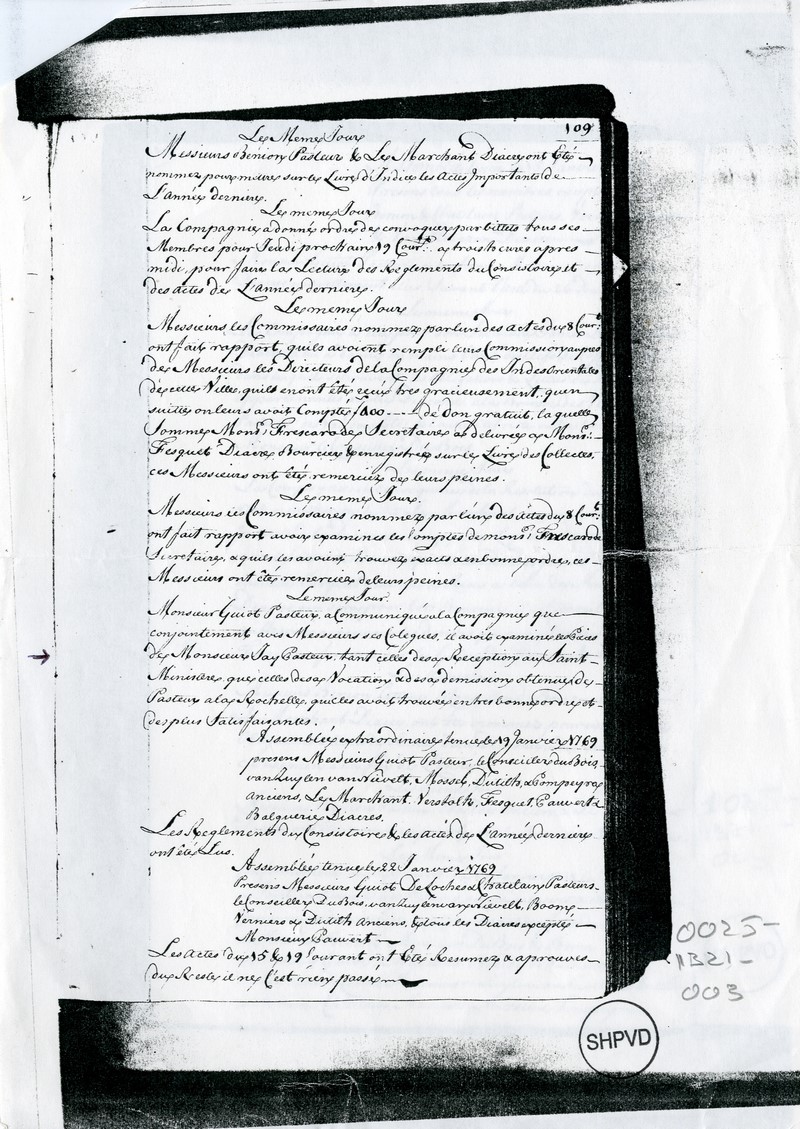 109
Le Meme Jour
Messieurs Bénion Pasteur & Le Marchant Diacre ont Eté
nommez pour metre sur le Livre d'Indice les Actes Importants de
L'année derniere.
Le meme Jour
La Compagnie a donné ordre de convoquer par billets tous ses
Membres pour Jeudi prochain 19 Cour.t a trois heures apres
midi, pour faire la Lecture des Reglements du Consistoire et
des Actes de L'année derniere.
Le meme Jour
Messieurs les Commissaires nommez par l'un des Actes du 8 Cour.t
ont fait rapport, quils avoient rempli leurs Commission aupres
de Messieurs les Directeurs de la Compagnie des Indes Orientales
de cette Ville, quils en ont été reçus tres gracieusement, quen
suitte on leurs avoit Compté ƒ 400 .—.— de Don gratuit, la quelle
Somme Mons.r Frescarode Secretaire a délivrée a Mons.r
Fesquet Diacre Boursier & enregistrée sur le Livre des Collectes,
ces Messieurs ont été remerciez de leurs peines.
Le meme Jour.
Messieurs les Commissaires nommez par l'un des Actes du 8 Cour.t
ont fait rapport avoir examinés les Comptes de mons.r Frescarode
Secretaire, & quils les avoient trouvés exacts & en bonne ordre, ces
Messieurs ont étés remerciez de leurs peines.
Le meme Jour.
Monsieur Guiot Pasteur, a Communiqué a la Compagnie que
conjointement avec Messieurs ses Colegues, il avoit examiné les Pieces
de Monsieur Jay Pasteur, tant celles de sa Reception au Saint
Ministere, que celles de sa Vocation & de sa demission obtenue de
Pasteur a la Rochelle, quil les avoit trouvée en tres bonne ordre et
des plus Satisfaisantes.
Assemblée extraordinaire tenue le 19 Janvier 1769
presens Messieurs Guiot Pasteur, le Conseiller du Bois,
van Zuylen van Nievelt, Mossel, Dutilh, & Pompeyra
Anciens, Le Marchant, Verstolk, Fesquet, Pauvert &
Balguerie Diacres.
Les Reglements du Consistoire & les Actes de L'Année derniere
ont étés Lus.
Assemblée tenue le 22 Janvier 1769
Presens Messieurs Guiot De Loches & Chatelain Pasteurs
le Conseiller Du Bois, van Zuylen van Nievelt, Boon,
Vernier & Dutilh Anciens, & tous les Diacres excepté
Monsieur Pauvert
Les Actes du 15 & 19 Courant ont Eté Resumez & aprouvés
du Reste il ne C'est rien passé
0025-
1321-
003
SHPVD